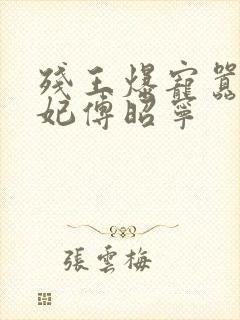 殘王爆寵囂
妃傅昭寧
張雲梅